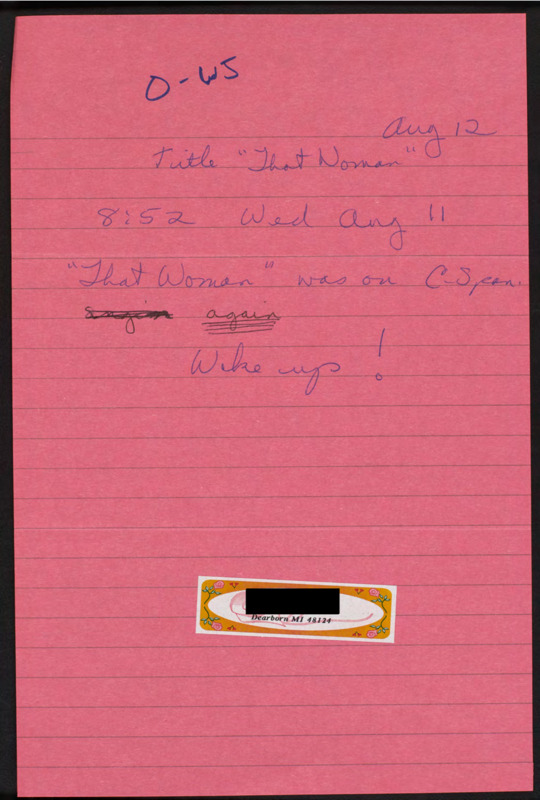 O-WS
Aug 12
Title "That Woman"
8:52 Wed Aug 11
"That Woman" was on C-Span.
again
Wake up!
Dearborn MI 48124